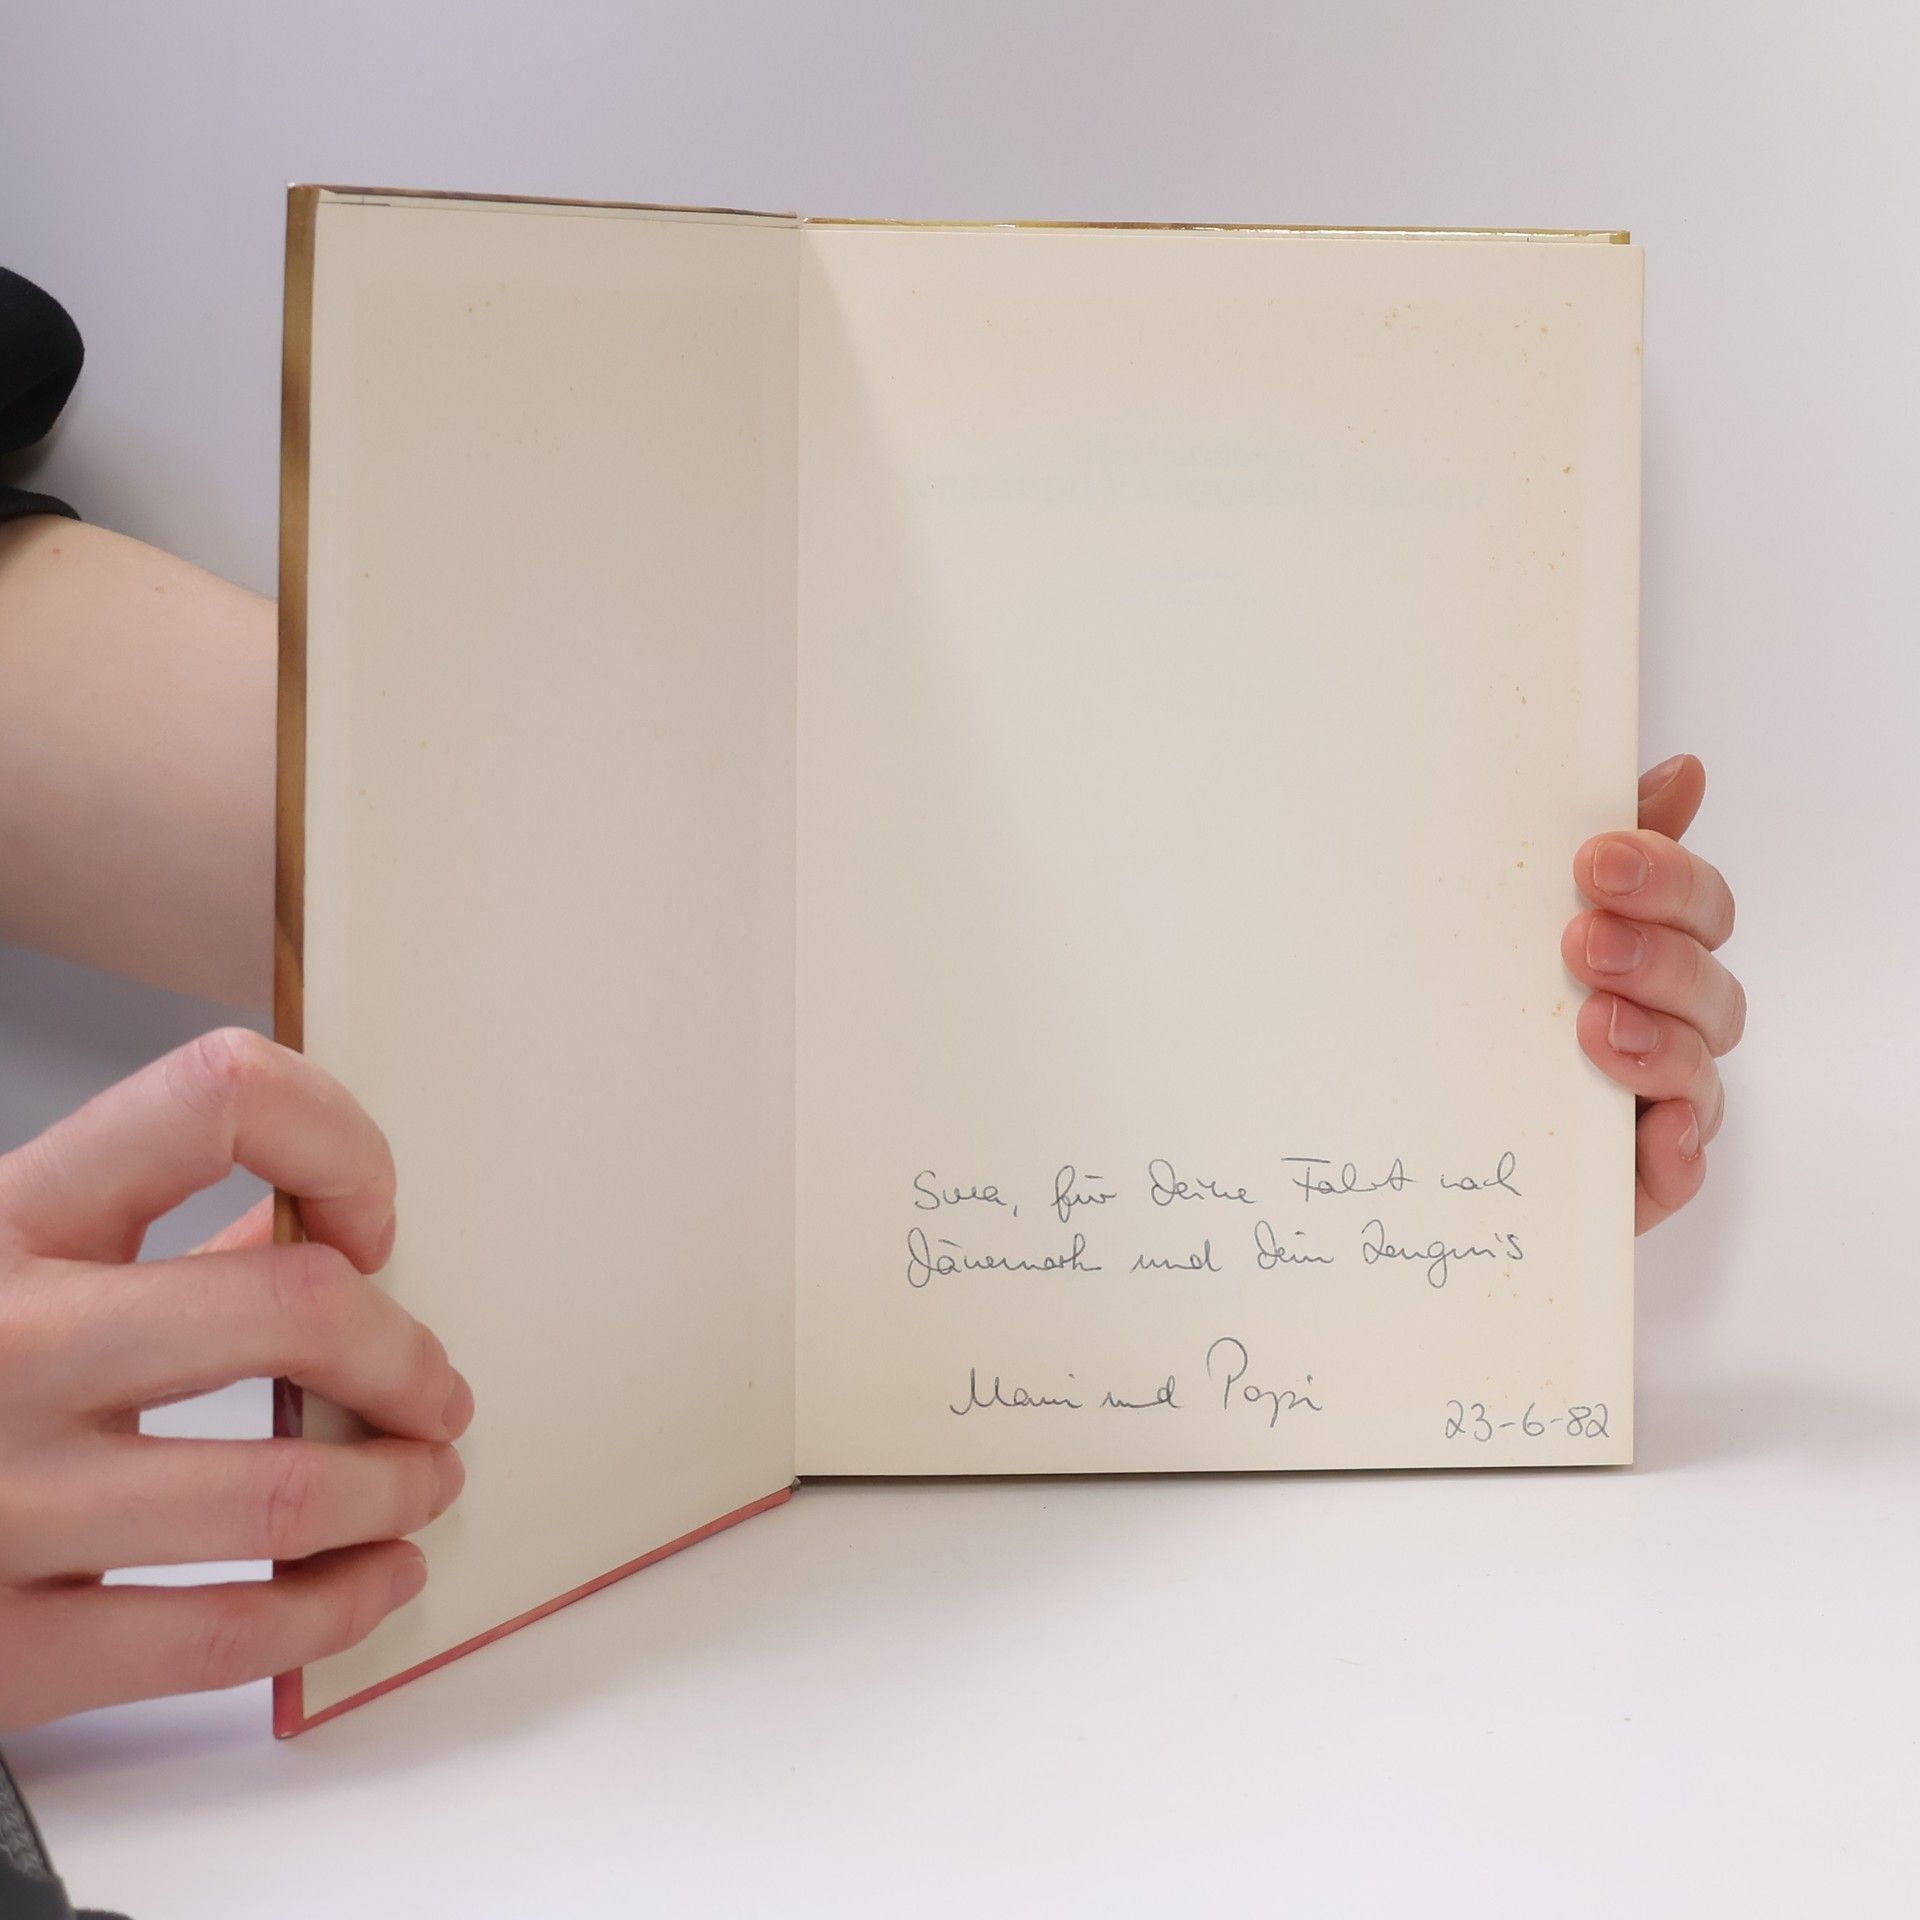 für Deine Fahrt nach
Dänemark und Dein Zeugnis
Mami und Papi
23-6-82